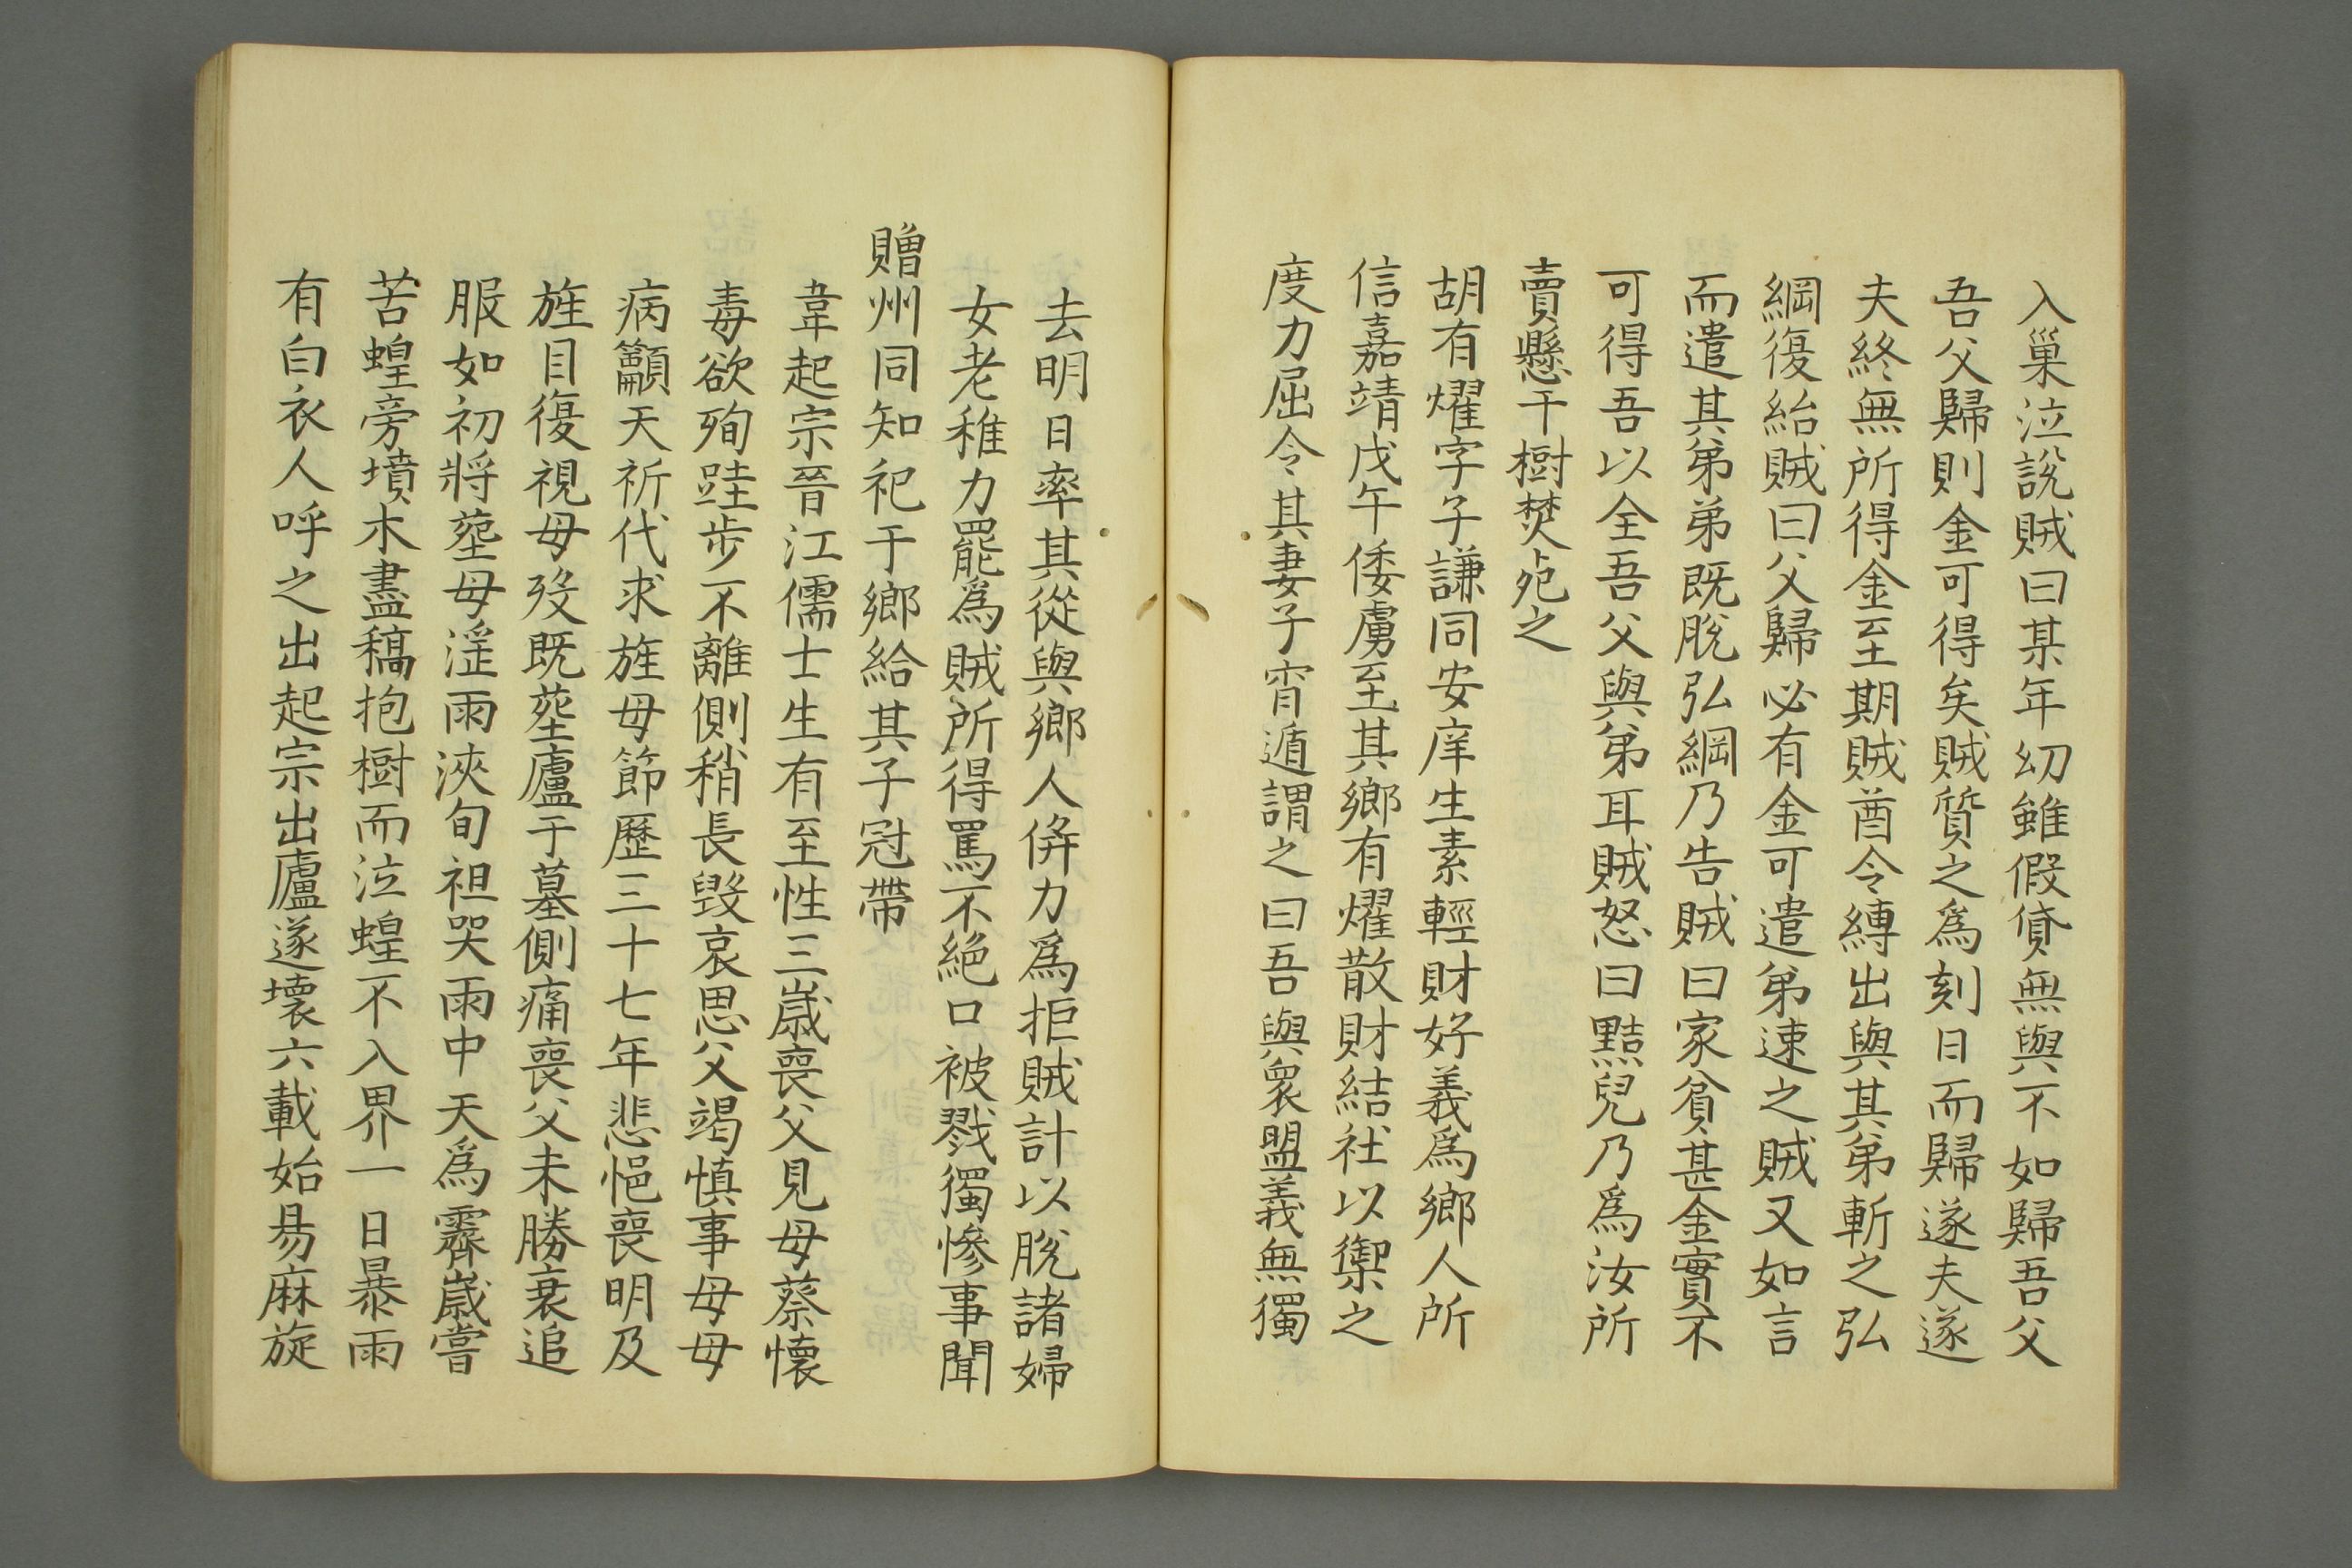 入巢泣說賊曰某年幼雖假貸無與不如歸吾父
吾父歸則金可得矣賊質之爲刻日而歸遂夫遂
夫終無所得金至期賊酋令縛出與其弟斬之弘
綱復紿賊曰父歸必有金可遣弟速之賊又如言
而遣其弟弟既脫弘綱乃告賊曰家貧甚金實不
可得吾以全吾父與弟耳賊怒曰黠兒乃爲汝所
賣懸干樹焚死之
胡有燿字子謙同安庠生素輕財好義爲鄉人所
信嘉靖戊午倭虜至其鄉有燿散財結社以禦之
度力屈令其妻子宵遁謂之曰吾與衆盟義無獨
去明日率其從與鄉人倂力爲拒賊計以脫諸婦
女老稚力罷爲賊所得罵不絕口被戮獨慘事聞
贈州同知祀于鄉給其子冠帶
韋起宗晉江儒士生有至性三歲喪父見母蔡懷
毒欲殉跬步不離側稍長毀哀思父竭慎事母母
病籲天祈代求旌母節歷三十七年悲悒喪明及
旌目復視母歿既塟廬于墓側痛喪父未勝衰追
服如初將塟母淫雨浹旬袒哭雨中天爲霽歲嘗
苦蝗旁墳木盡稿抱樹而泣蝗不入界一日暴雨
有白衣人呼之出起宗出廬遂壞六載始易麻旋